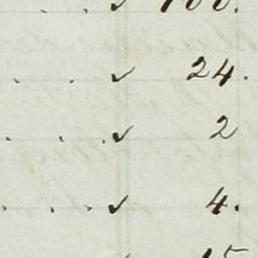 . . ✓ 100.
. . . ✓ 24.
. . . ✓ 2
. . . ✓ 4.
✓ 15